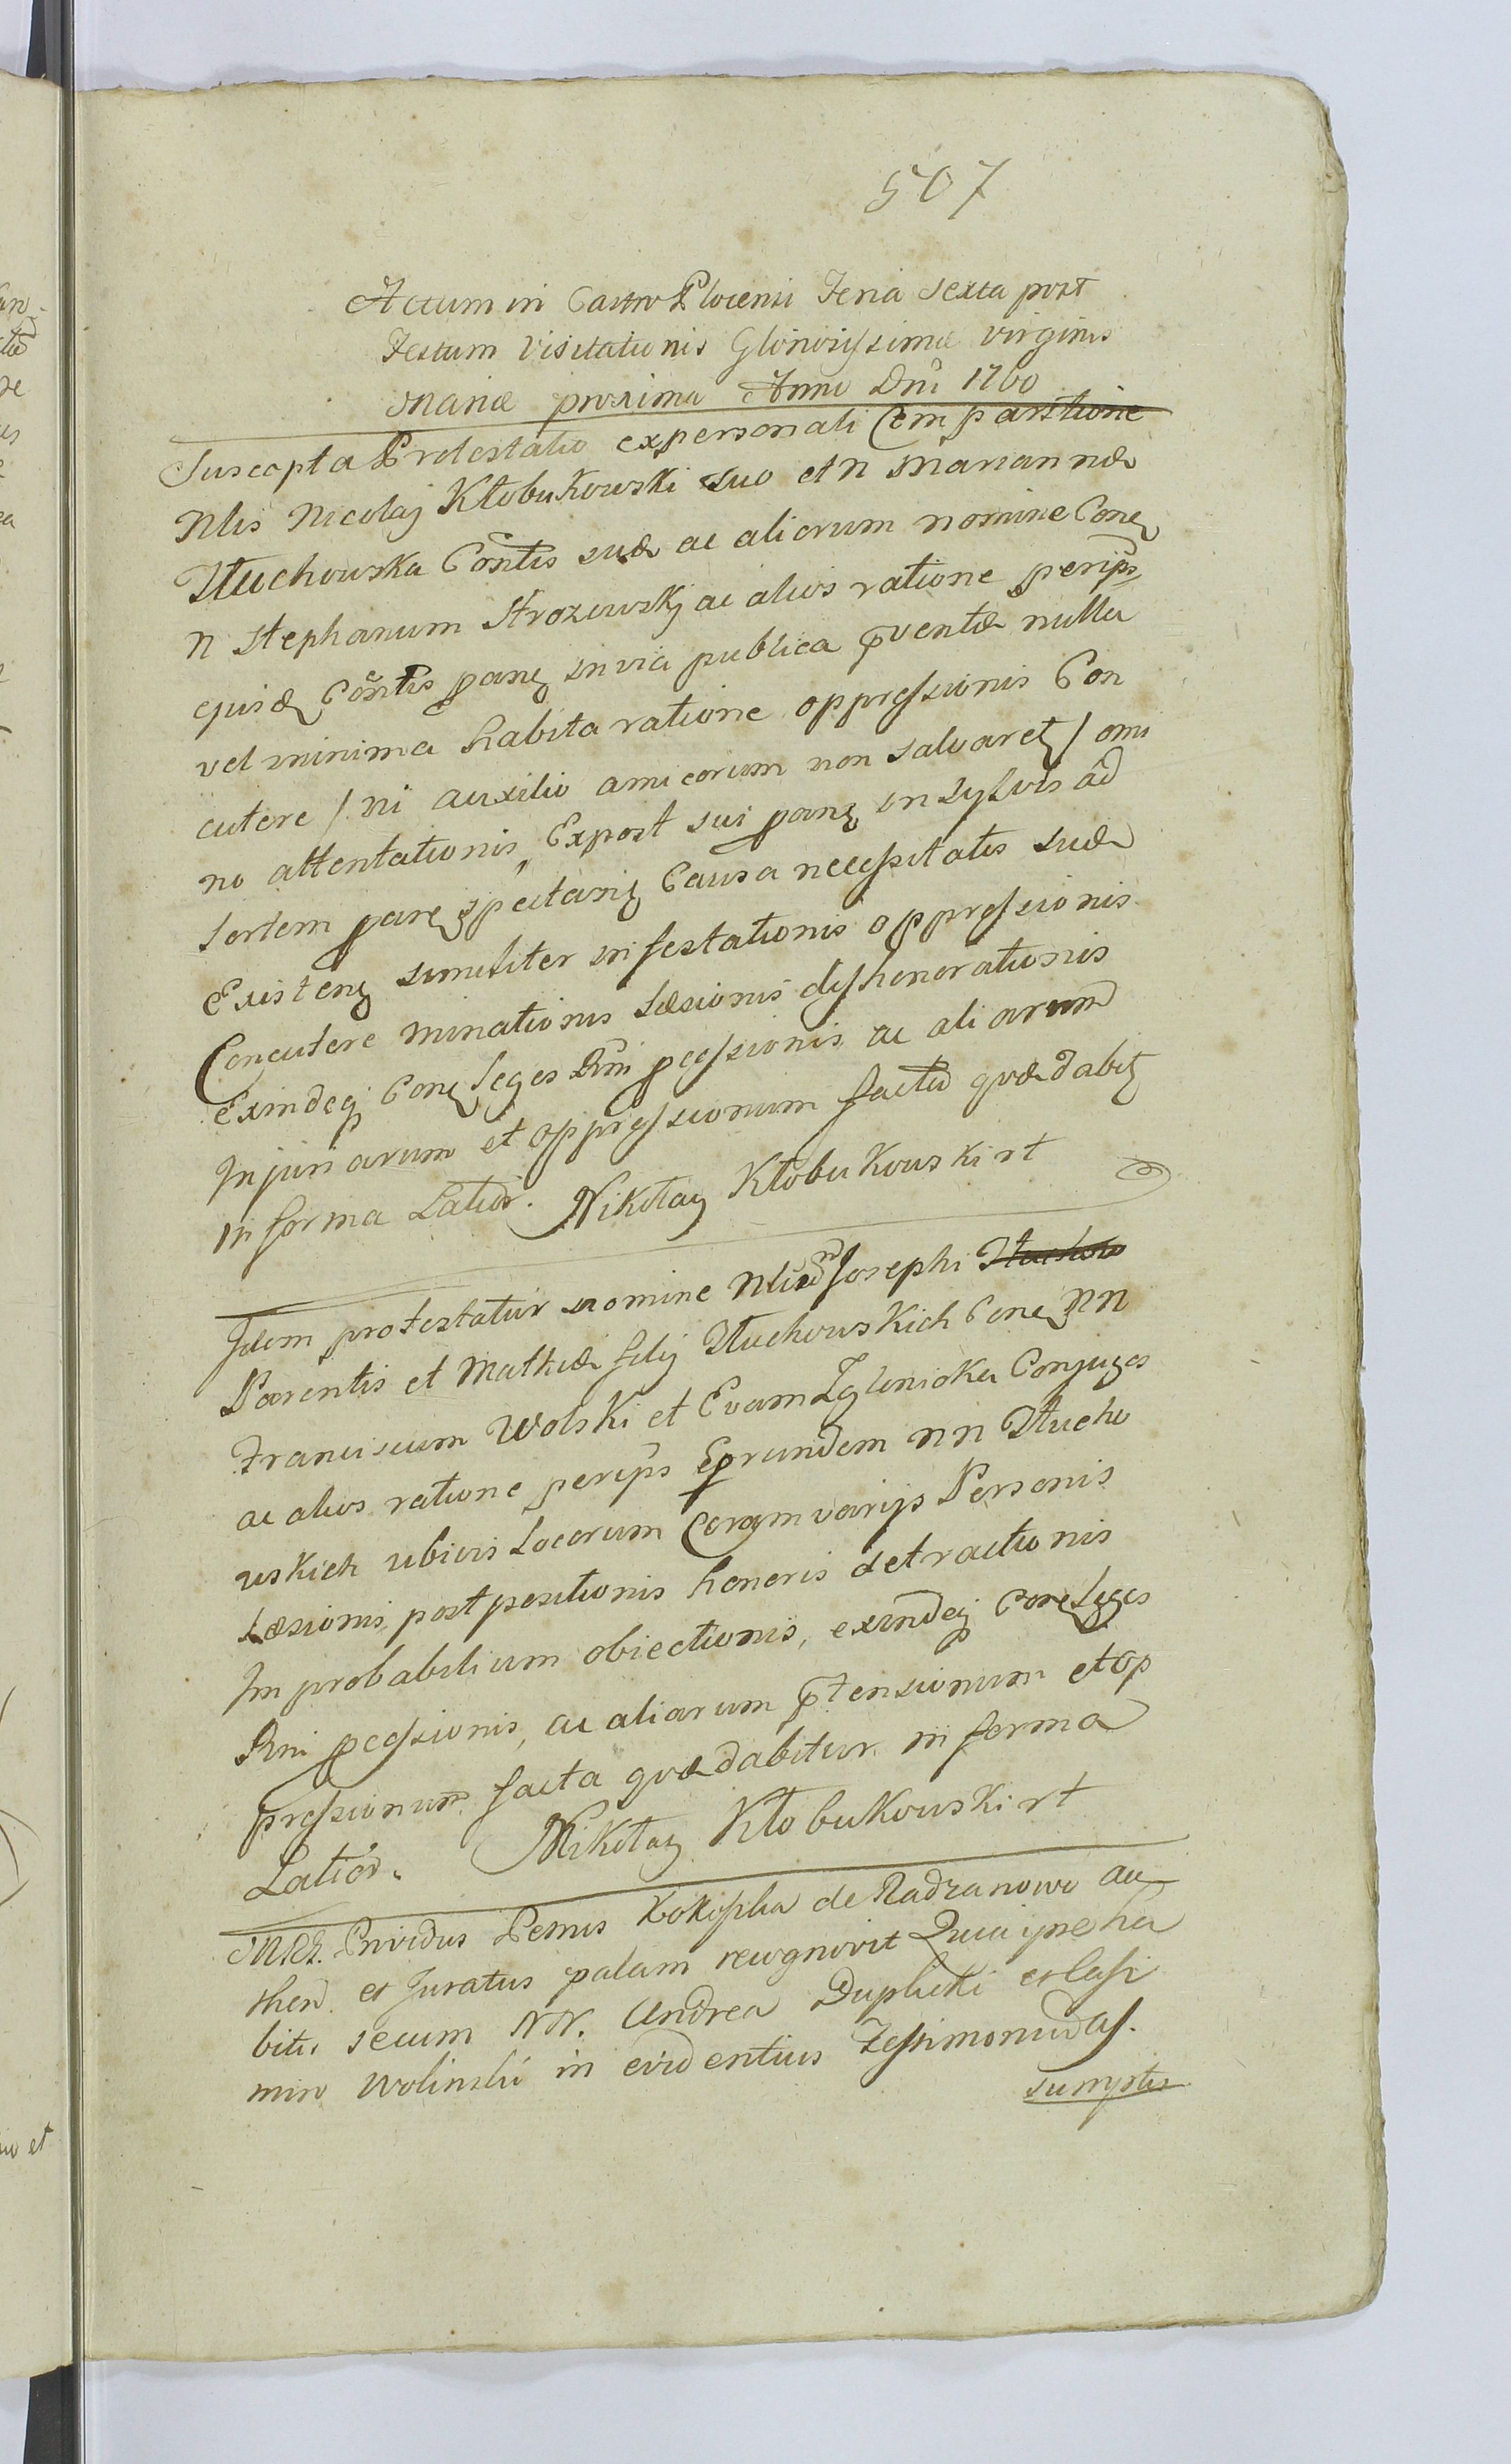 507
Actum in Castro Plocensi Feria sexta post
Festum Visitationis Gloriosissimæ virginis
Mariæ proxima Anno Dni 1760
Suscepta Protestatio ex personali Compartione
Nlis Nicolaj Kłobukowski suo et N Mariannæ
Tłuchowska Conthis suæ ac aliorum nomine Conq
N Stephanum Strozewskj ac alios ratione perips
ejusdq Conthis panq in via publica pventæ nulla
vel minima habita ratione oppressionis Con
cutere / ni auxilio amicorum non salvaretq / omi
no attentationis, Expost sui panq in sylvis ad
sortem panq spectanq Causa necessitatis suæ
Existenq similiter infestationis oppressionis
Concutere minationis Læsionis dyshonorationis
Exindeq Conq Leges Rni pcessionis ac aliarum
Injuriarum et oppressionum facta quæ dabitq
in forma Latior. Nikołay Kłobukowski rt
Idem protestatur nomine Nlium Josephi
Parentis et Mathiæ filij Tłuchowskich Conq NN
Franciscum Wolski et Evam Zglinicka Conjuges
ac alios ratione perips Eprundem NN Tłucho
wskich ubivis Locorum Coram varijs Personis
Læsionis, postpositionis honoris detractionis
Improbabilium obiectionis, exindeq Conq Leges
Rni pcessionis, ac aliarum ptensionum et op
pressionum facta quæ dabitur in forma
Latior. Nikołay Kłobukowski rt
Mrl. Providus Petrus Kokoszka de Radzanowo au
then. et Juratus palam recognovit Quia ipse ha
bitis secum NN. Andrea Duplicki et Casi
miro Wolinski in evidentius Testimonium das.
sumptis